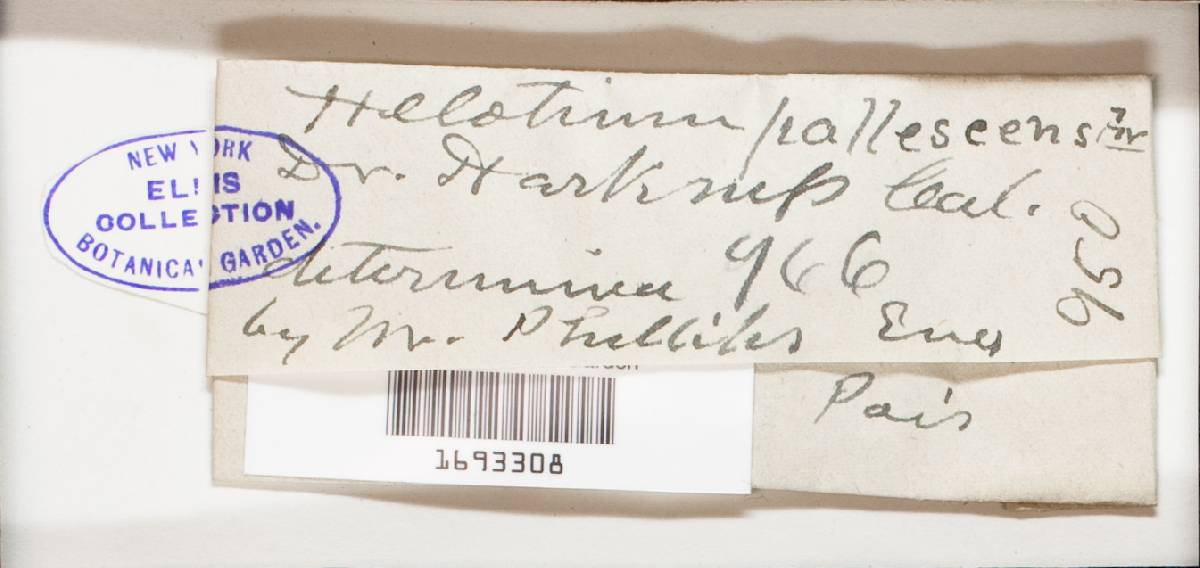 Helotium pallescens Fr
Dr. Harkness Cal.
determined 966
by Mr. Phillips Eng
950
Pais
NEW YORK
ELLIS
COLLECTION
BOTANICAL GARDEN.
1693308